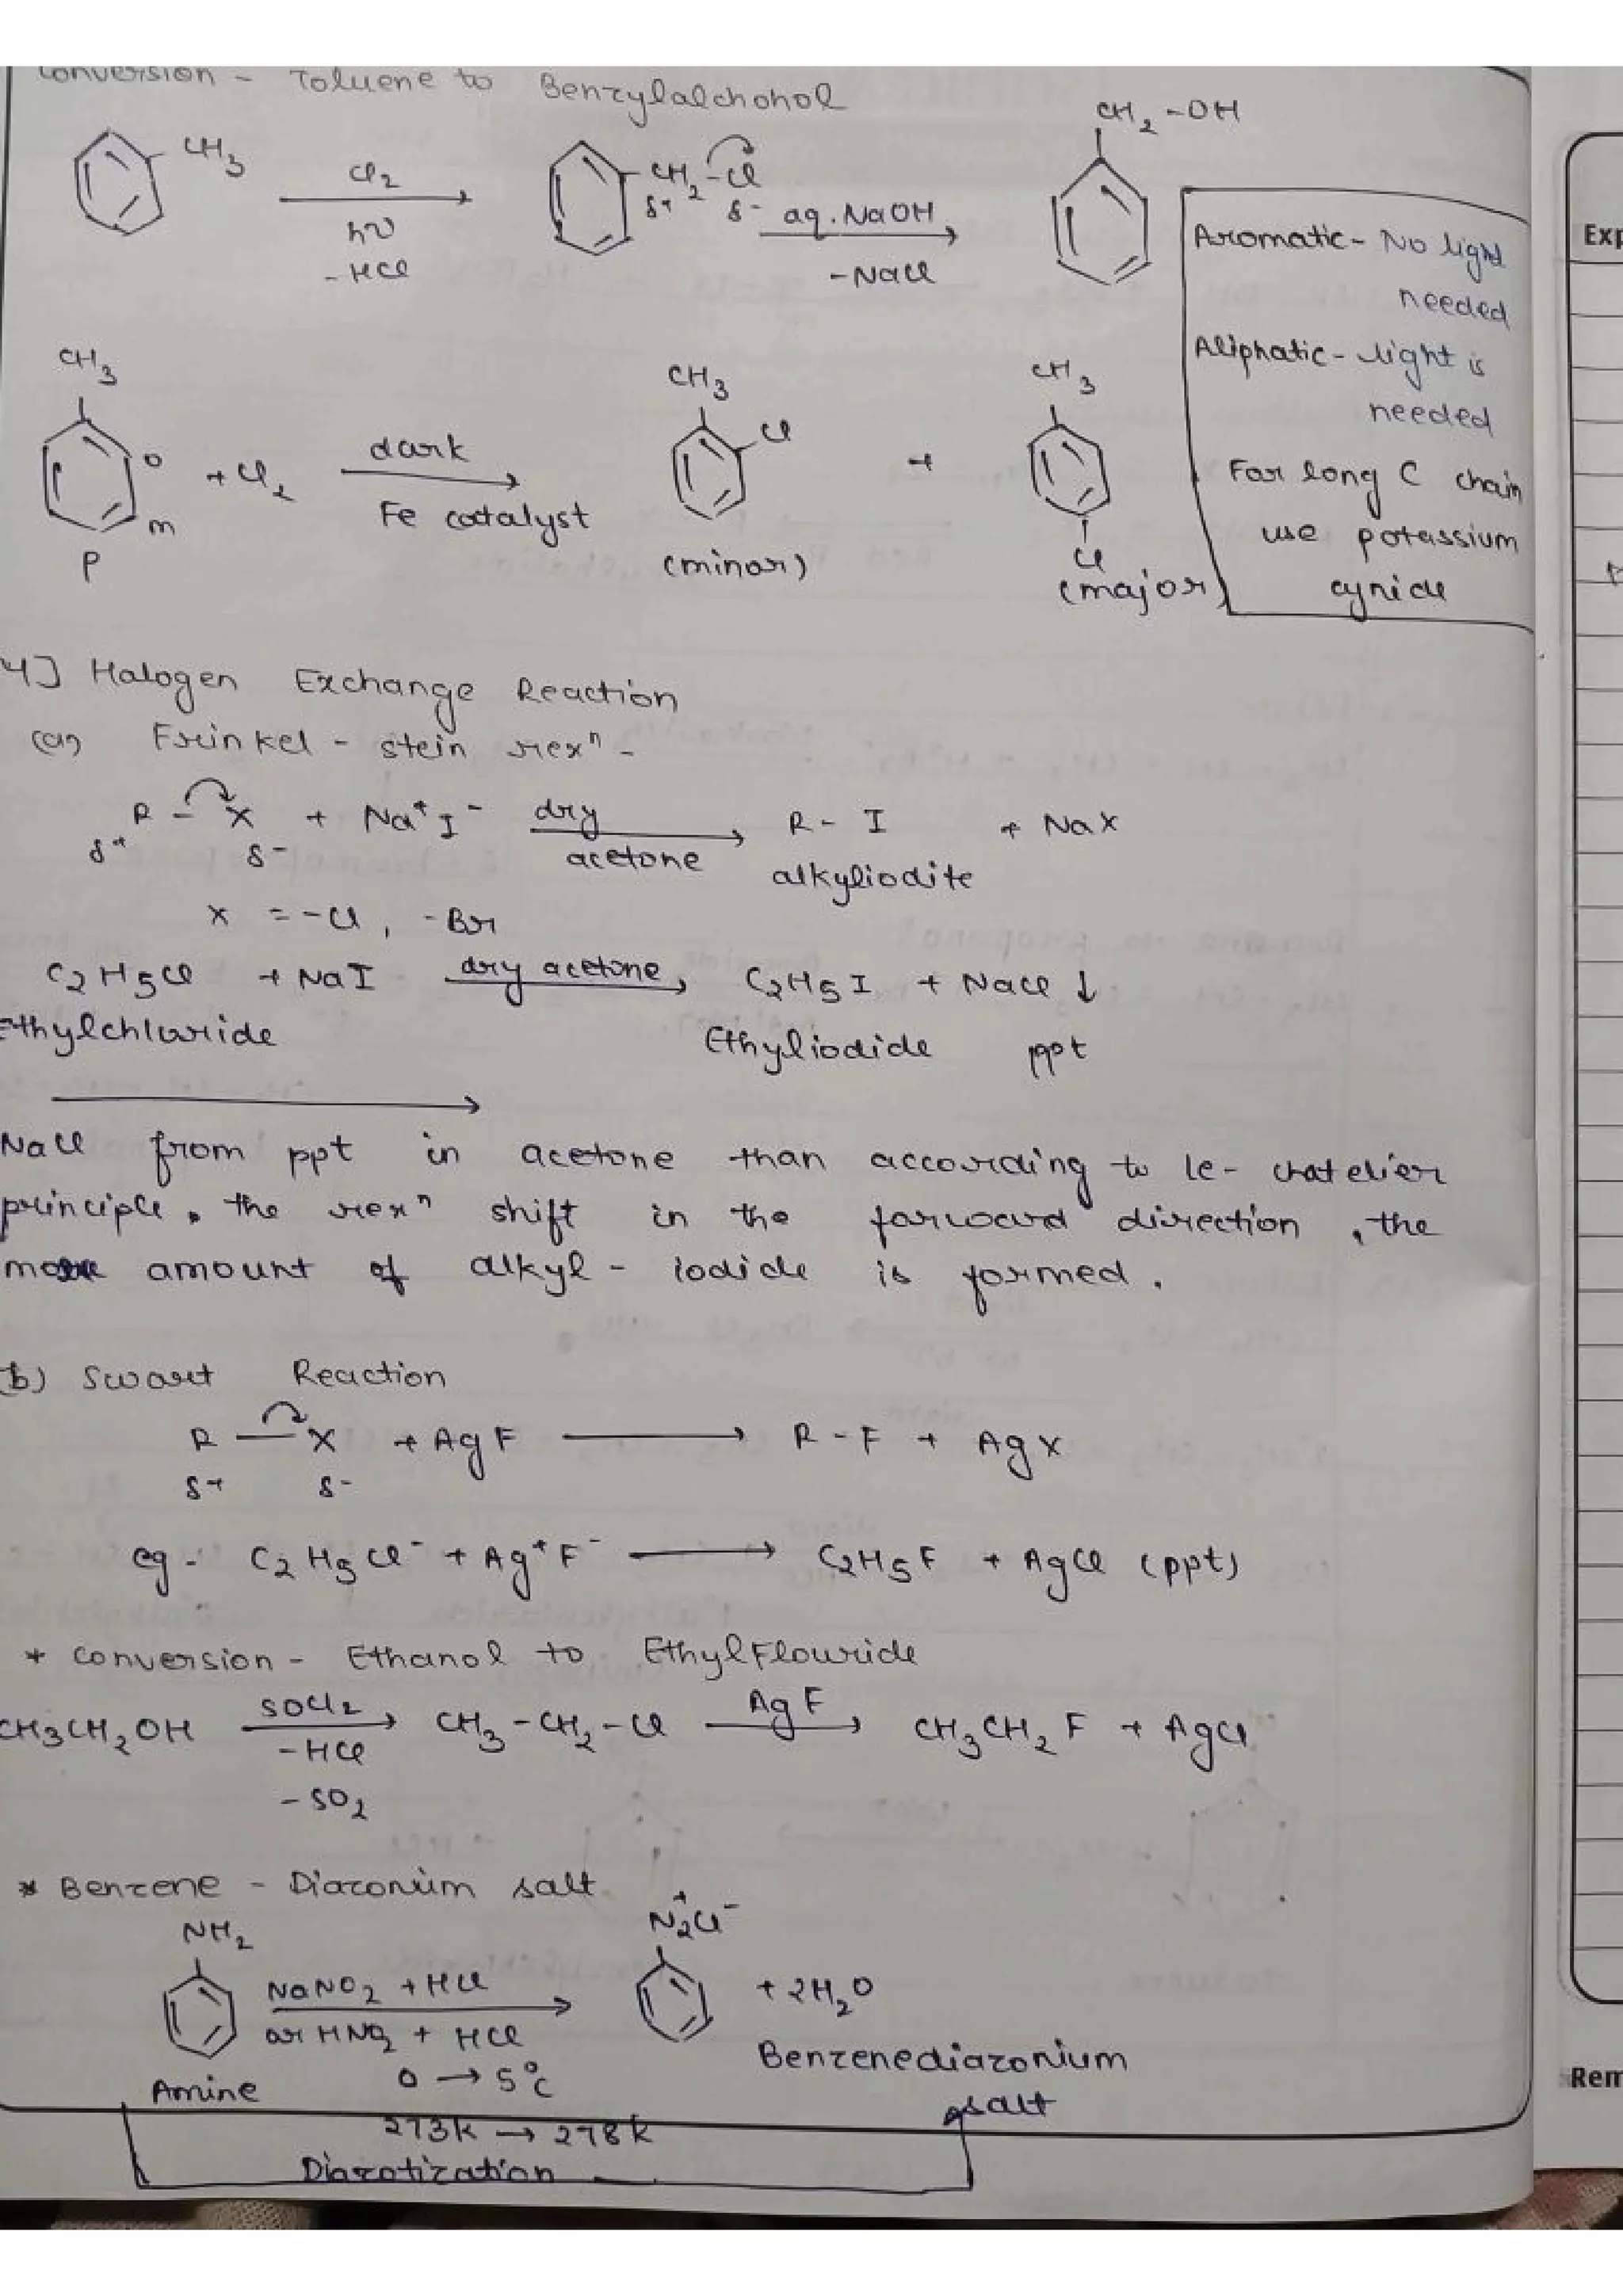 Conversion - Toluene to Benzylalchohol
CH3 Cl2 hν -HCl CH2-Cl δ+ δ- aq.NaOH -NaCl CH2-OH
Aromatic - No light
needed
Aliphatic - light is
needed
For long C chain
use potassium
cynide
CH3 o m p + Cl2 dark Fe catalyst CH3 Cl (minor) + CH3 Cl (major)
4] Halogen Exchange Reaction
(a) Frinkel - stein rexn -
R - X + Na+ I- dry acetone R - I + NaX
δ+ δ- alkyliodite
X = -Cl, -Br
C2H5Cl + NaI dry acetone → C2H5I + NaCl ↓
Ethylchloride Ethyliodide ppt
→
NaCl from ppt in acetone than according to le-chatelier
principle, the rexn shift in the forward direction, the
more amount of alkyl - iodide is formed.
(b) Swart Reaction
R — X + AgF → R - F + AgX
δ+ δ-
eg - C2H5Cl- + Ag+F- → C2H5F + AgCl (ppt)
* Conversion - Ethanol to EthylFlouride
CH3CH2OH SOCl2 → CH3-CH2-Cl AgF → CH3CH2F + AgCl
-HCl
-SO2
* Benzene - Diazonium salt
NH2 N2+Cl-
NaNO2 + HCl → + 2H2O
or HNO2 + HCl
Benzenediazonium
salt
Amine 0 → 5°C
273k → 278k
Diazotization
Exp
Rem